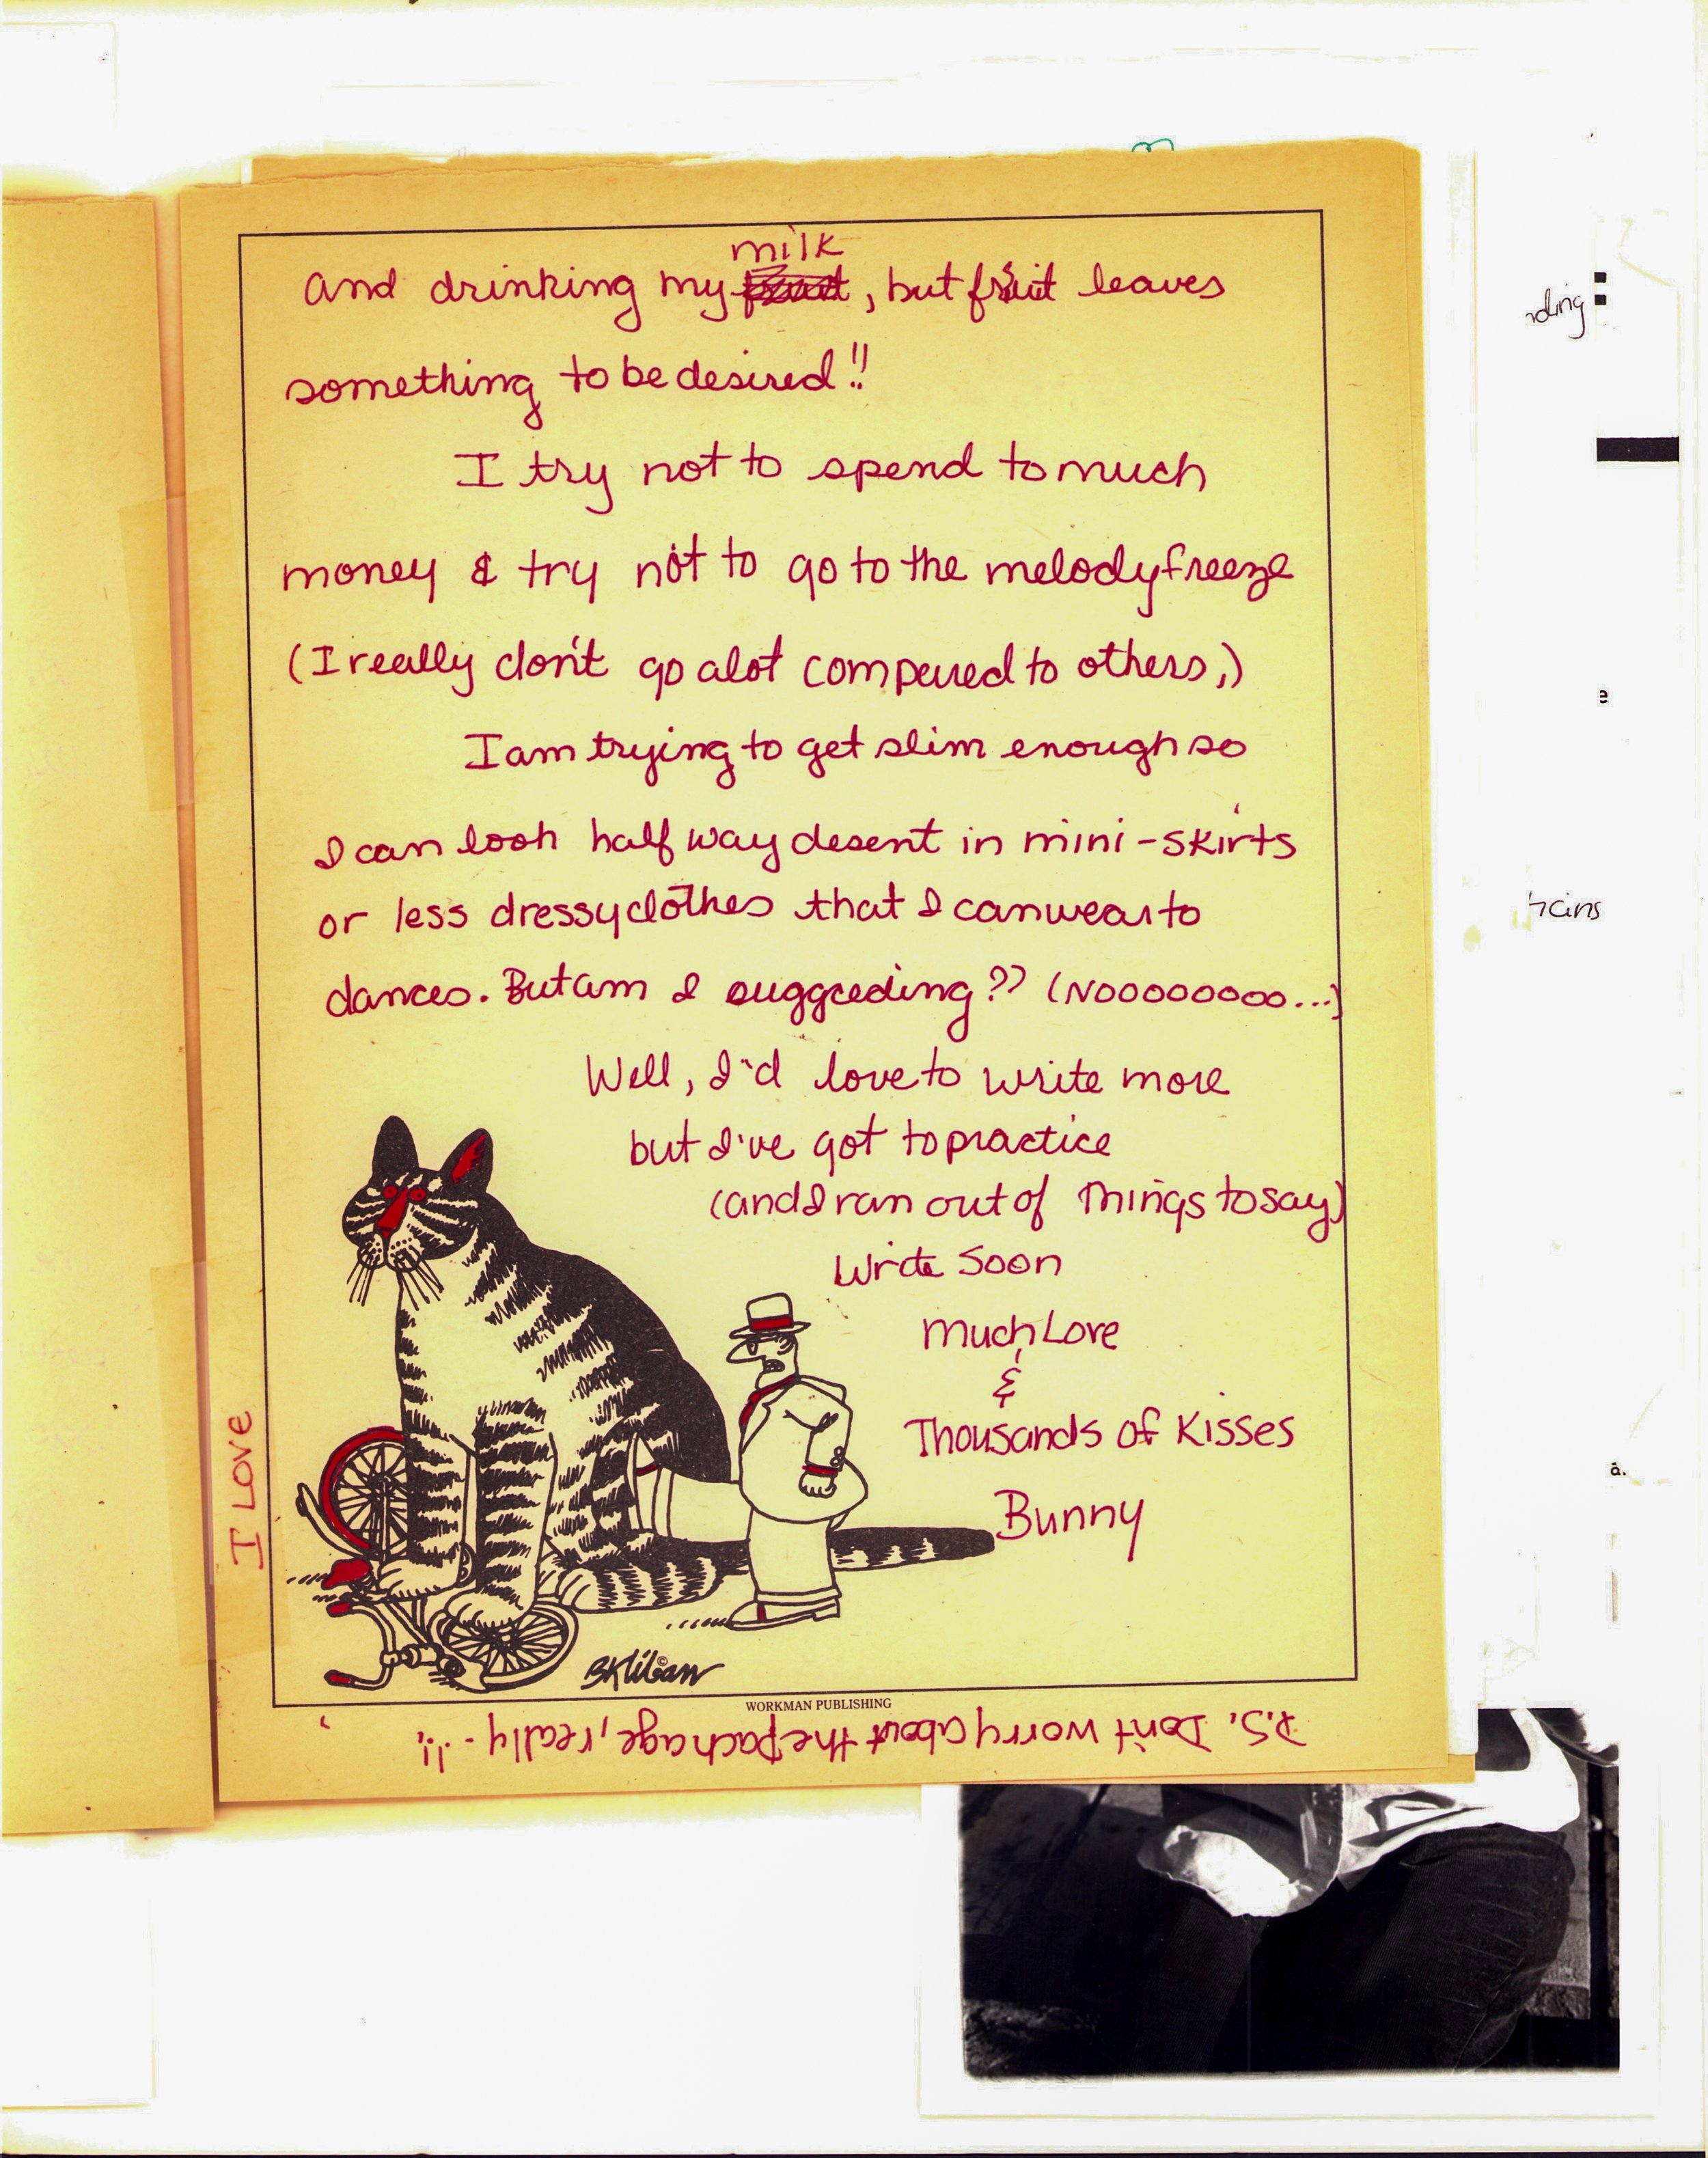 milk
and drinking my fruit, but fruit leaves
something to be desired!!
I try not to spend to much
money & try not to go to the melody freeze
(I really don't go alot compered to others,)
I am trying to get slim enough so
I can look half way desent in mini-skirts
or less dressy clothes that I can wear to
dances. But am I suggceding?? (NOOOOOOOO...)
Well, I'd love to write more
but I've got to practice
(and I ran out of things to say)
Write Soon
Much Love
&
Thousands of Kisses
Bunny
I LOVE
BKliban ©
WORKMAN PUBLISHING
P.S. Don't worry about the package, really-!!